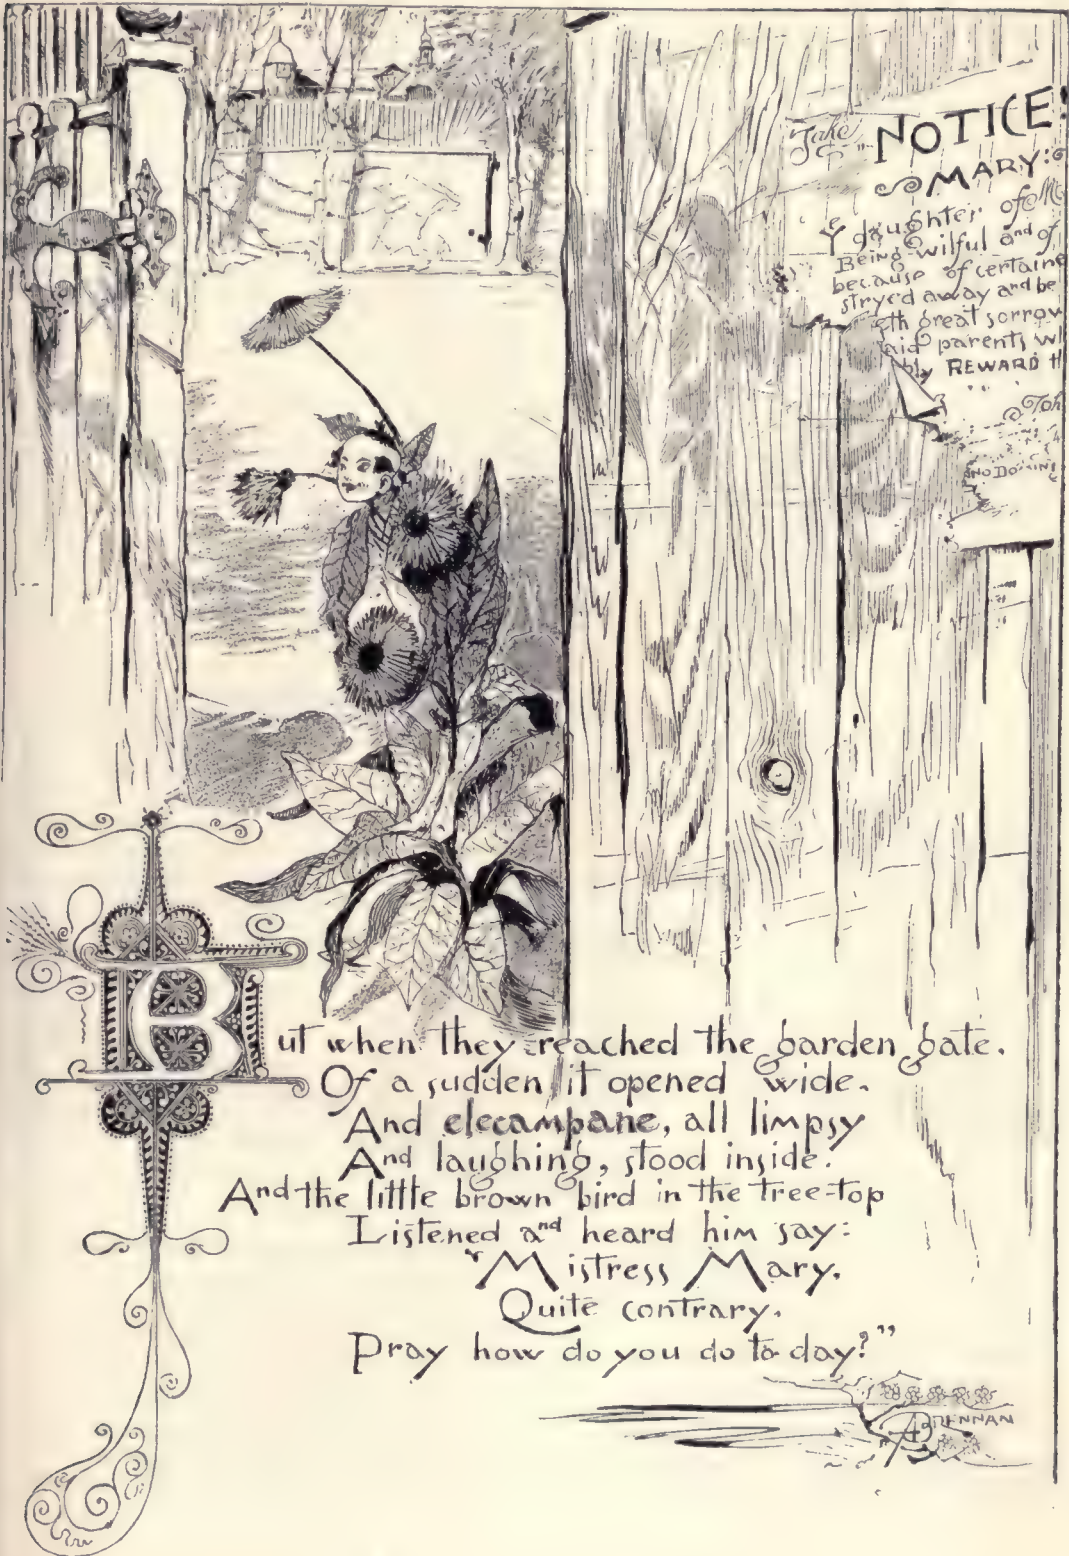 Take
NOTICE!
MARY:
Ye daughter of M
Being wilful and of
because of certaine
stryed away and be
eth great sorrow
aid parents w
bly REWARD
Joh
NO DOMINI
But when they reached the garden gate.
Of a sudden it opened wide.
And elecampane, all limpsy
And laughing, stood inside.
And the little brown bird in the tree-top
Listened and heard him say:
"Mistress Mary,
Quite contrary.
Pray how do you do to-day?"
A BRENNAN